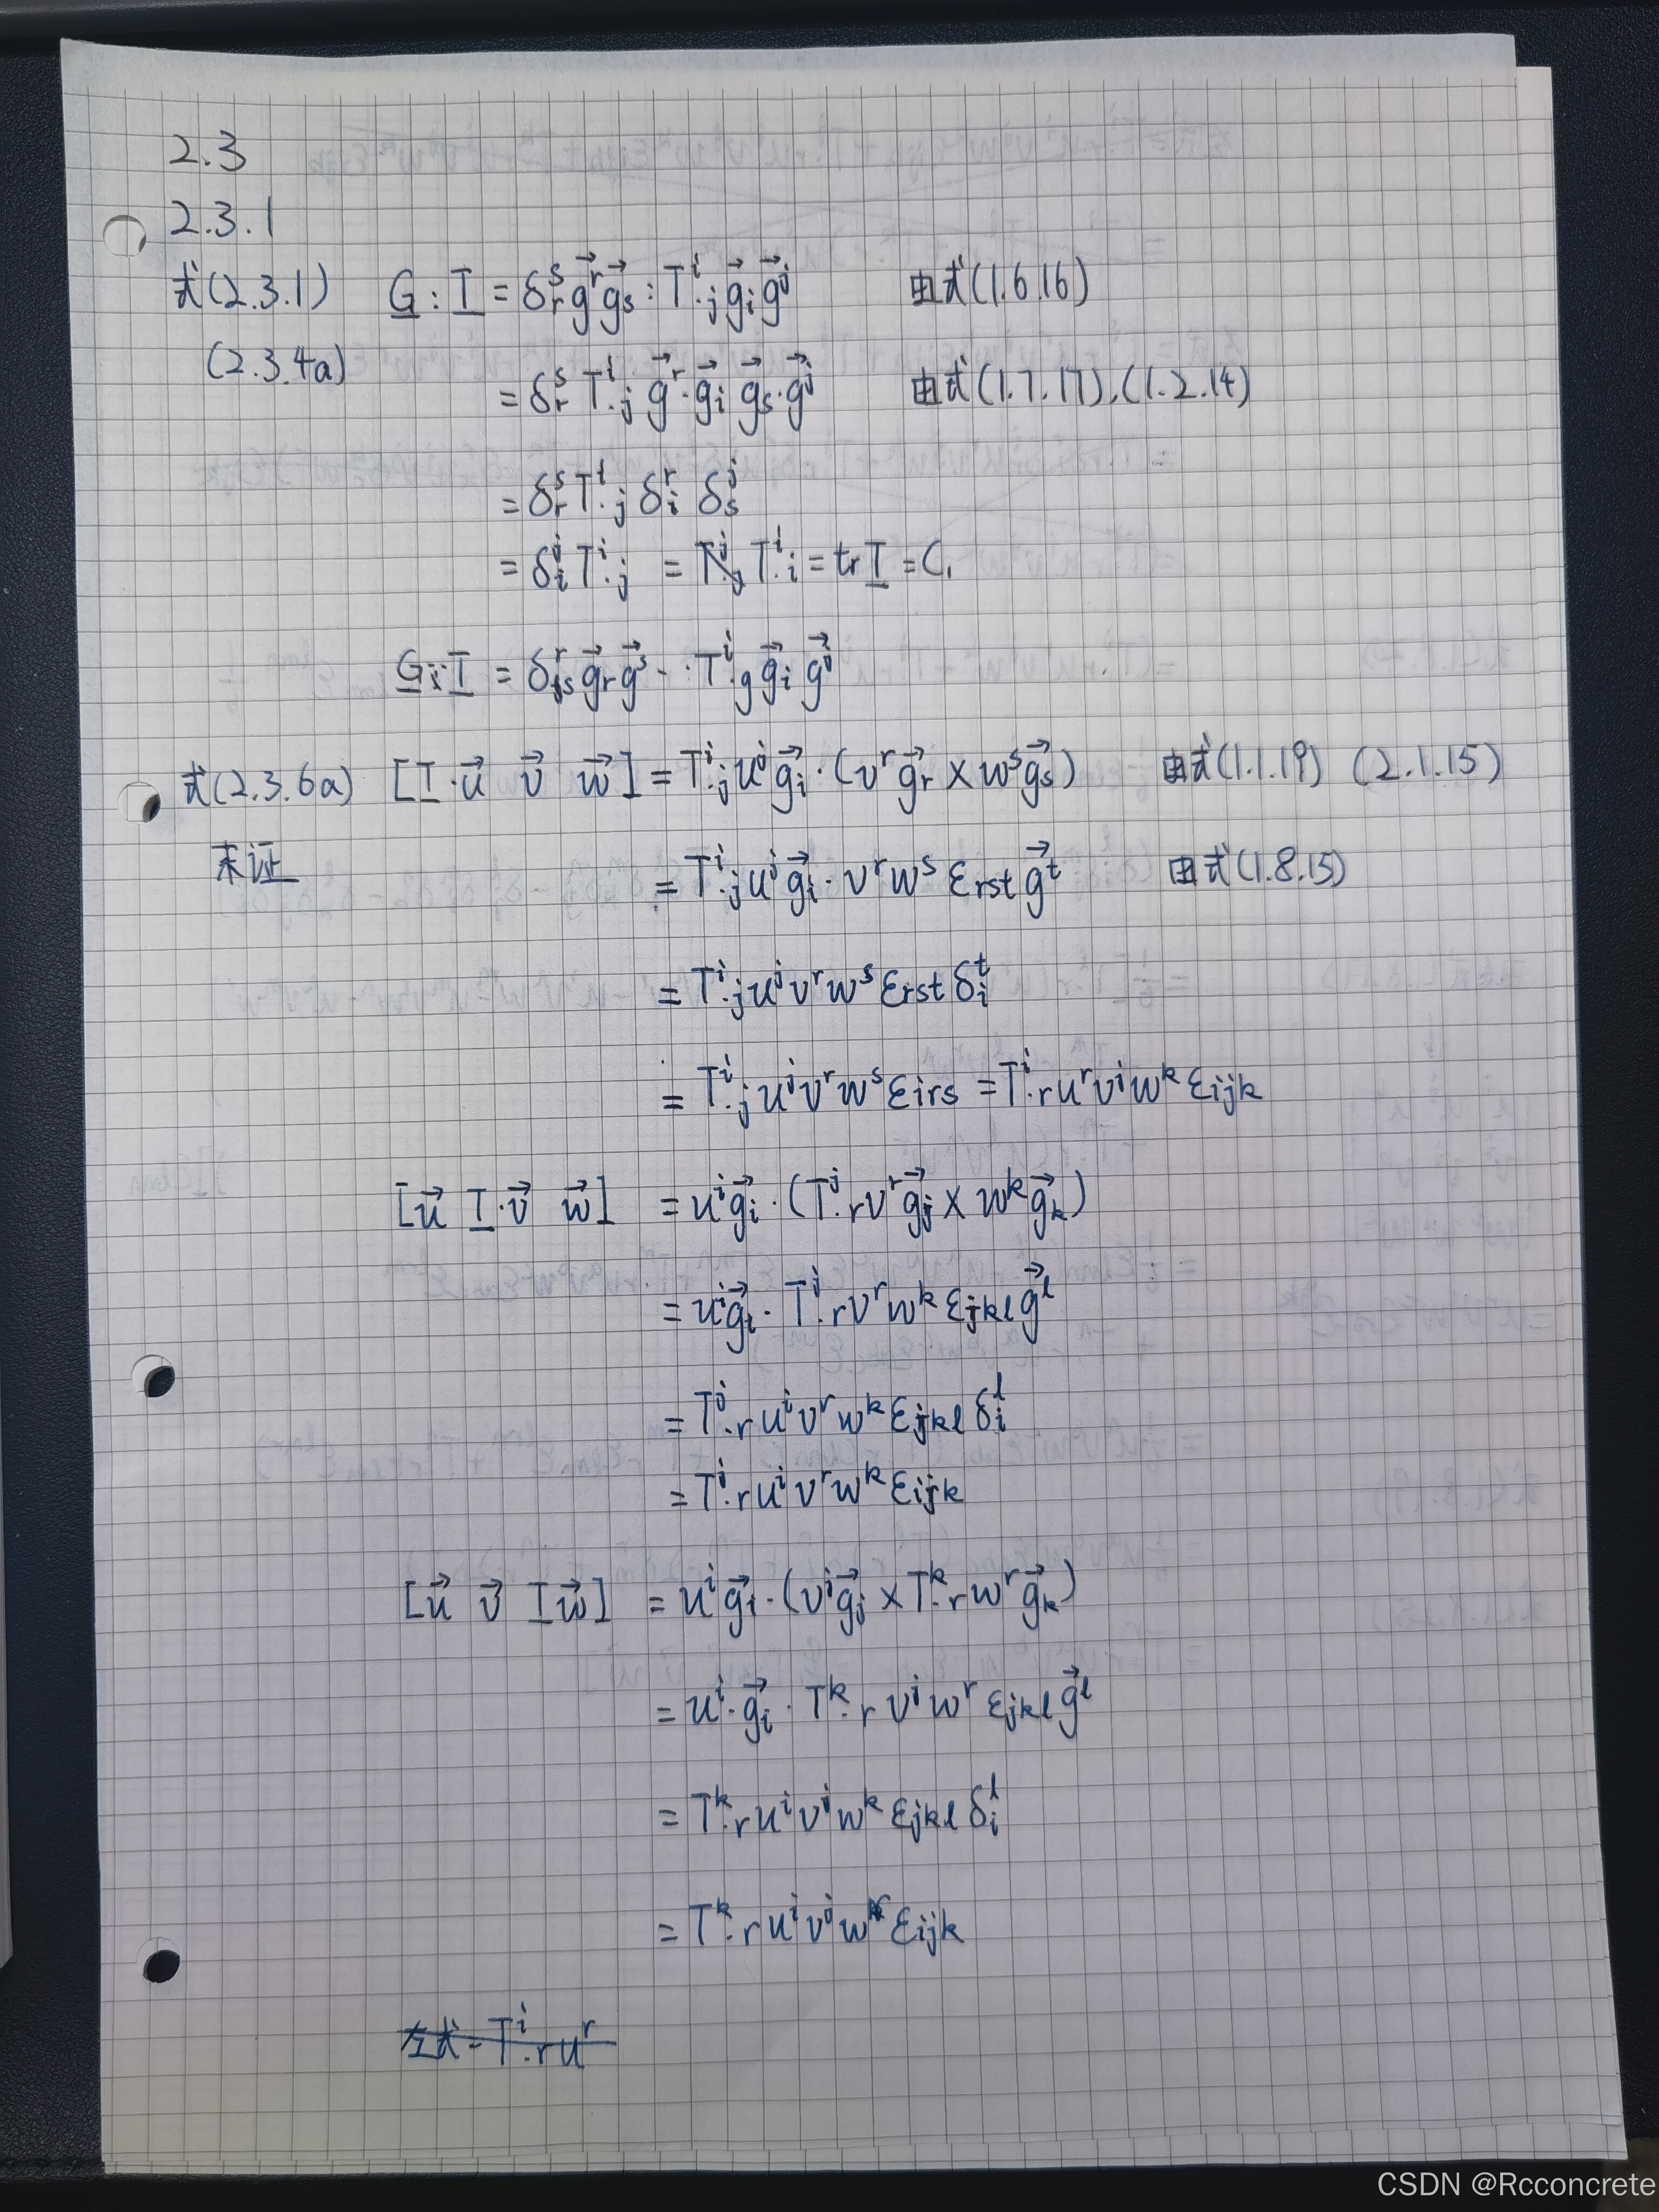 2.3
2.3.1
式(2.3.1) G : T = δ_r^s g⃗^r g⃗_s : T^i_{·j} g⃗_i g⃗^j 由式(1.6.16)
(2.3.4a) = δ_r^s T^i_{·j} g⃗^r · g⃗_i g⃗_s · g⃗^j 由式(1.7.17),(1.2.14)
= δ_r^s T^i_{·j} δ_i^r δ_s^j
= δ_i^j T^i_{·j} = T^i_{·i} = tr T = C_1
G : T = δ^r_s g⃗_r g⃗^s ·· T^i_{·g} g⃗_i g⃗^j
式(2.3.6a) [T·u⃗ v⃗ w⃗] = T^i_{·j} u^j g⃗_i · (v^r g⃗_r × w^s g⃗_s) 由式(1.1.19) (2.1.15)
未证 = T^i_{·j} u^j g⃗_i · v^r w^s ε_{rst} g⃗^t 由式(1.8.15)
= T^i_{·j} u^j v^r w^s ε_{rst} δ_i^t
= T^i_{·j} u^j v^r w^s ε_{irs} = T^i_{·r} u^r v^j w^k ε_{ijk}
[u⃗ T·v⃗ w⃗] = u^i g⃗_i · (T^j_{·r} v^r g⃗_j × w^k g⃗_k)
= u^i g⃗_i · T^j_{·r} v^r w^k ε_{jkl} g⃗^l
= T^j_{·r} u^i v^r w^k ε_{jkl} δ_i^l
= T^j_{·r} u^i v^r w^k ε_{ijk}
[u⃗ v⃗ T w⃗] = u^i g⃗_i · (v^j g⃗_j × T^k_{·r} w^r g⃗_k)
= u^i · g⃗_i · T^k_{·r} v^j w^r ε_{jkl} g⃗^l
= T^k_{·r} u^i v^j w^k ε_{jkl} δ_i^l
= T^k_{·r} u^i v^j w^r ε_{ijk}
左式 = T^i_{·r} u^r
CSDN @Rcconcrete